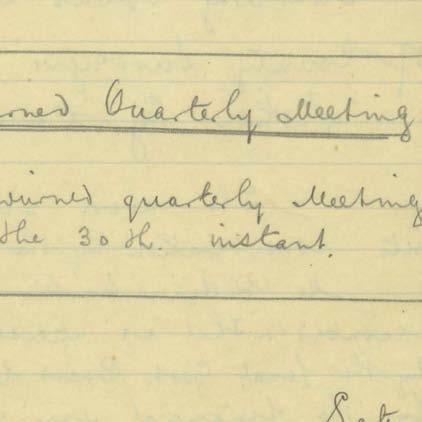 urned Quarterly Meeting
ourned quarterly Meeting
the 30th. instant.